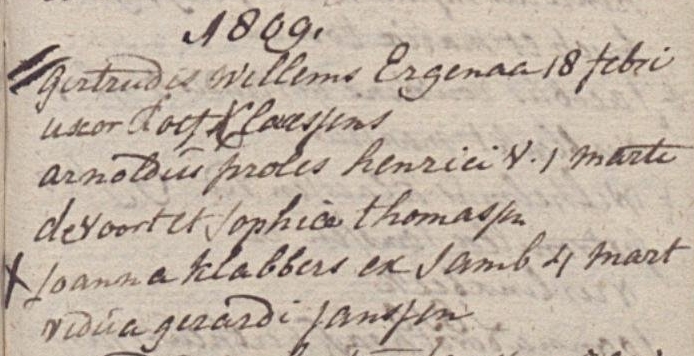 1809.
Gertrudis Willems Ergenaa 18 febri
uxor Klaessens
arnoldus proles henrici V. 1 marti
devoort et Sophia thomassen
Joanna Klabbers ex Samb 4 mart
vidua gerardi Janssen